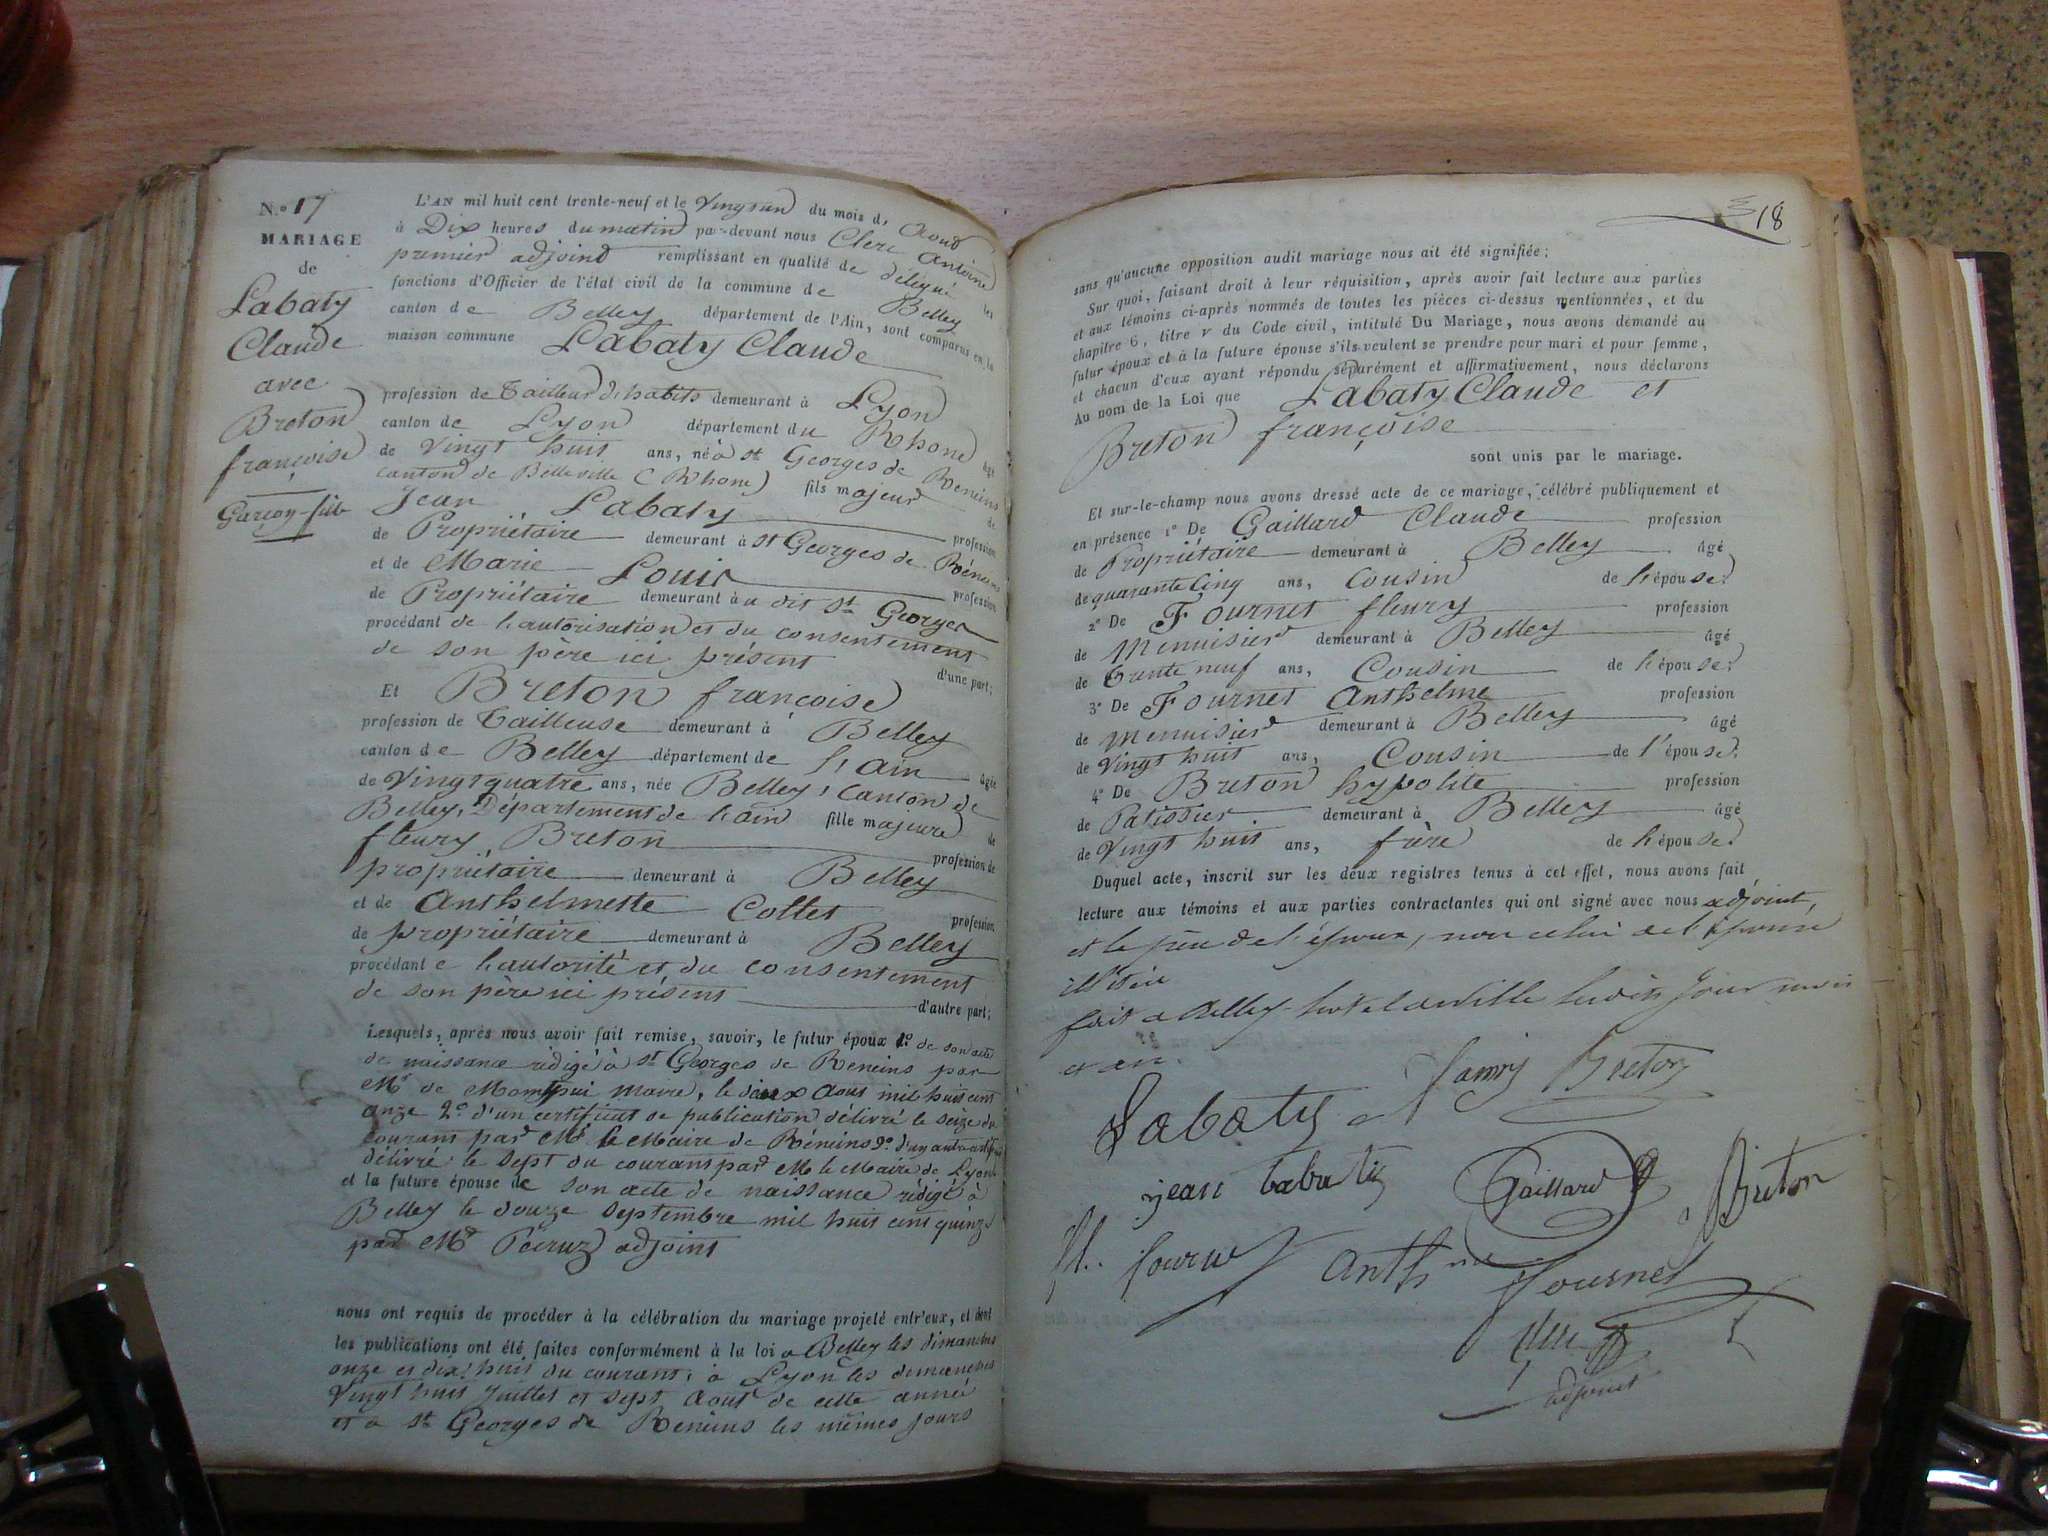 N.º 17
MARIAGE
de
Labaty
Claude
avec
Breton
françoise
Garçon-fille
L'AN mil huit cent trente-neuf et le Vingtun du mois d, Aout
à Dix heures du matin par-devant nous Clerc Antoine
premier adjoint remplissant en qualité de délégué les
fonctions d'Officier de l'état civil de la commune de Belley
canton de Belley département de l'Ain, sont comparus en la
maison commune Labaty Claude
profession de Tailleur d'habits demeurant à Lyon
canton de Lyon département du Rhone âgé
de Vingt huit ans, né à St Georges de Reneins
canton de Belleville (Rhone) fils majeur de
Jean Labaty profession
de Propriétaire demeurant à St Georges de Réneins
et de Marie Louis profession
de Propriétaire demeurant au dit St Georges
procédant de l'autorisation et du consentement
de son père ici présent d'une part;
Et Breton françoise
profession de Tailleuse demeurant à Belley
canton de Belley département de l'ain âgée
de Vingt quatre ans, née Belley, Canton de
Belley, Département de l'ain fille majeure de
fleury Breton profession de
propriétaire demeurant à Belley
et de Anthelmette Collet profession
de propriétaire demeurant à Belley
procédant e l'autorité et du consentement
de son père ici présent d'autre part;
Lesquels, après nous avoir fait remise, savoir, le futur époux 1º de son acte
de naissance rédigé à St Georges de Reneins par
Mr de Maire, le deux Aout mil huit cent
onze 2º d'un certificat de publication délivré le seize du
courant par Mr le Maire de Réneins 3º d'un autre
délivré le sept du courant par M le Maire de Lyon
et la future épouse de son acte de naissance rédigé à
Belley le douze Septembre mil huit cent quinze
par Mr adjoint
nous ont requis de procéder à la célébration du mariage projeté entr'eux, et dont
les publications ont été faites conformément à la loi a Belley les dimanches
onze et dix huit du courant, à Lyon les dimanches
Vingt huit Juillet et sept Aout de cette année
et a St Georges de Reneins les mêmes jours
18
sans qu'aucune opposition audit mariage nous ait été signifiée;
Sur quoi, faisant droit à leur réquisition, après avoir fait lecture aux parties
et aux témoins ci-après nommés de toutes les pièces ci-dessus mentionnées, et du
chapitre 6, titre v du Code civil, intitulé Du Mariage, nous avons demandé au
futur époux et à la future épouse s'ils veulent se prendre pour mari et pour femme,
et chacun d'eux ayant répondu séparément et affirmativement, nous déclarons
Au nom de la Loi que Labaty Claude et
Breton françoise
sont unis par le mariage.
Et sur-le-champ nous avons dressé acte de ce mariage, célébré publiquement et
en présence 1º De Gaillard Claude profession
de Propriétaire demeurant à Belley âgé
de quarante Cinq ans, Cousin de l'épouse.
2º De Fournet fleury profession
de Menuisier demeurant à Belley âgé
de Trente neuf ans, Cousin de l'épouse.
3º De Fournet Anthelme profession
de Menuisier demeurant à Belley âgé
de Vingt huit ans, Cousin de l'épouse.
4º De Breton hypolite profession
de Patissier demeurant à Belley âgé
de Vingt huit ans, frère de l'épouse.
Duquel acte, inscrit sur les deux registres tenus à cet effet, nous avons fait
lecture aux témoins et aux parties contractantes qui ont signé avec nous adjoint,
et le père de l'époux, non celui de l'épouse
illitéré
fait a Belley hotel de ville lesdits jour mois
et an.
Labaty Breton
jean labatis Gaillard Breton
fl. fournet Anth Fournet
Clerc
adjoint